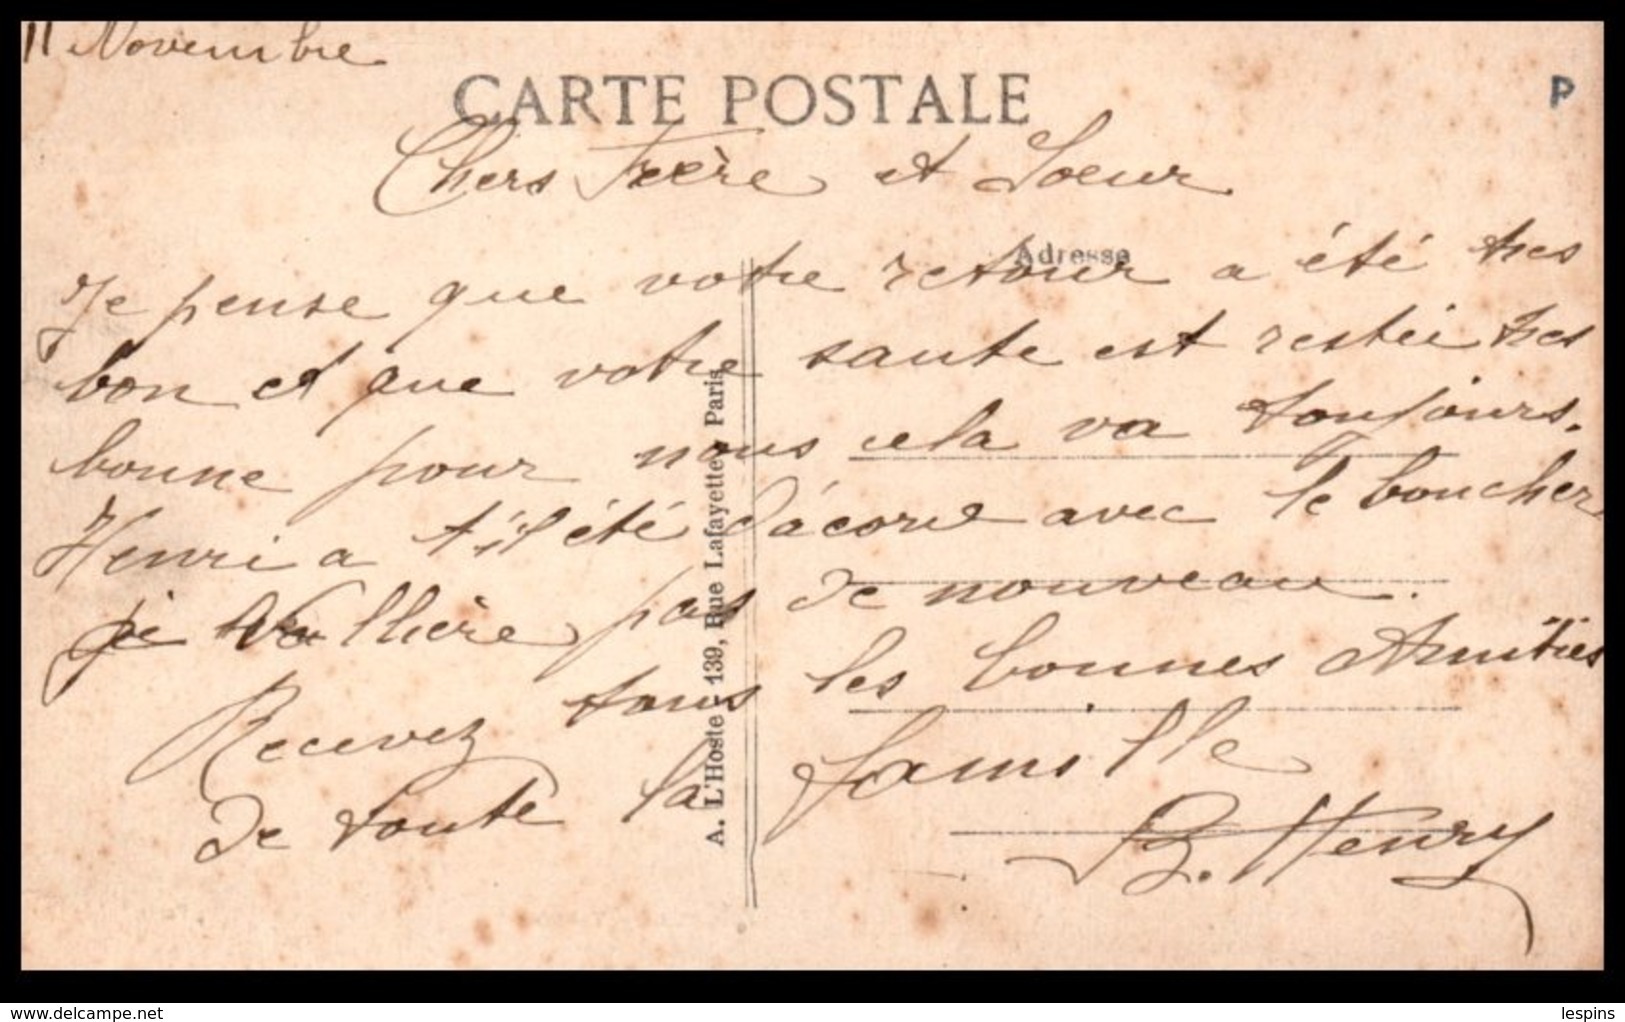 11 Novembre
CARTE POSTALE
P
Chers Frère et Soeur
Adresse
Je pense que votre retour a été tres
bon et que votre sante est restéi tres
bonne pour nous cela va toujours.
Henri a t'il été d'acord avec le boucher
je pas de nouveau.
Recevez tous les bonnes Amitiés
de toute la famille
B. Henry
A. L'Hoste - 139, Rue Lafayette, Paris
delcampe.net
lespins